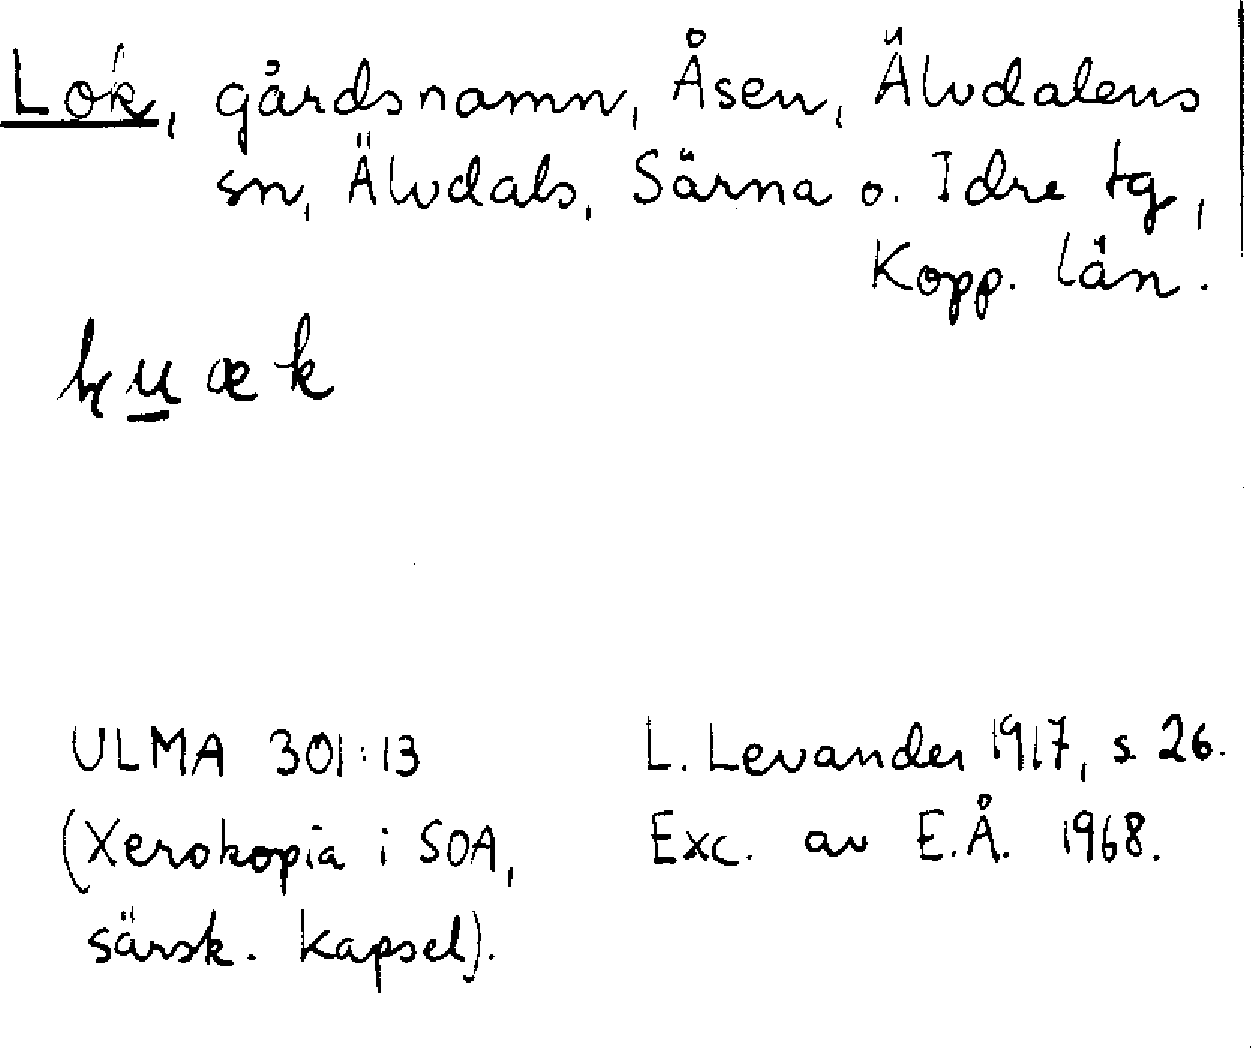 Lok, gårdsnamn, Åsen, Älvdalens
sn, Älvdals, Särna o. Idre tg,
Kopp. län.
ULMA 301:13
(Xerokopia i SOA,
särsk. kapsel).
L. Levander 1917, s 26.
Exc. av E.Å. 1968.